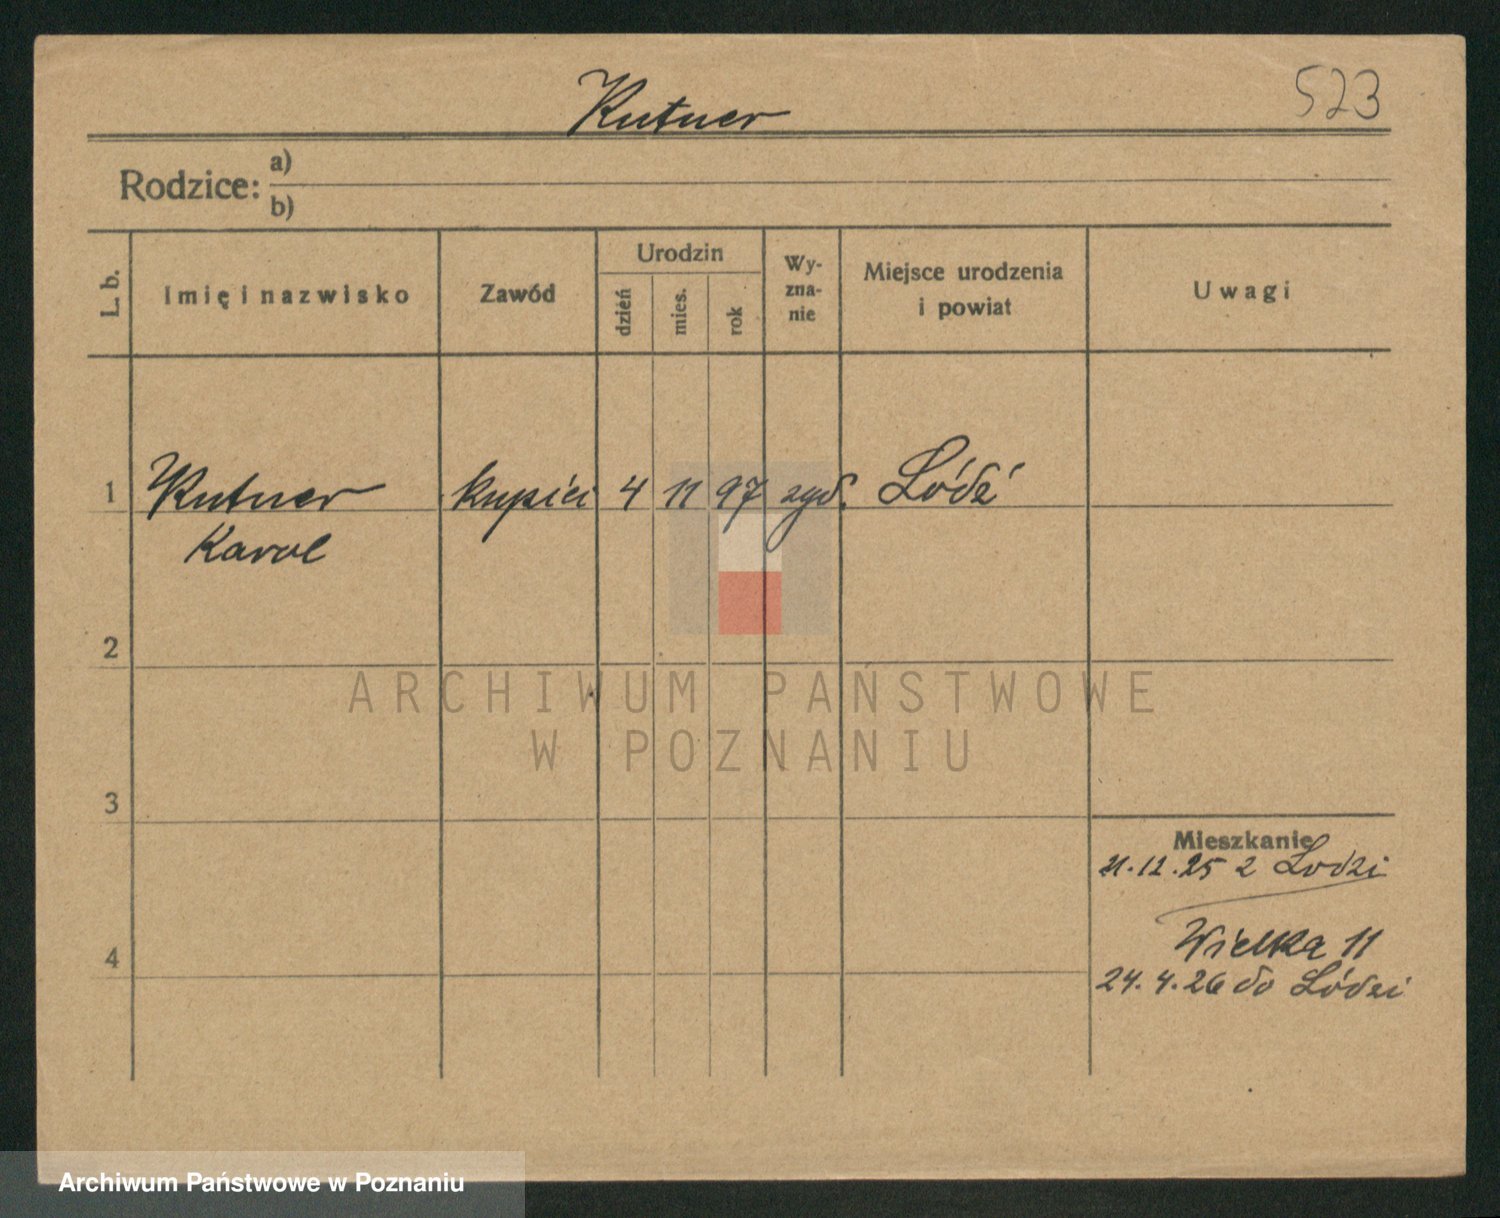 Kutner
523
Rodzice: a)
b)
L. b.
Imię i nazwisko
Zawód
Urodzin
dzień
mies.
rok
Wy-
zna-
nie
Miejsce urodzenia
i powiat
Uwagi
1 Kutner kupiec 4 11 97 żyd. Łódź
Karol
2
ARCHIWUM PAŃSTWOWE
W POZNANIU
3
Mieszkanie
12.25 z Łodzi
4 Wielka 11
24.4.26 do Łódzi
Archiwum Państwowe w Poznaniu